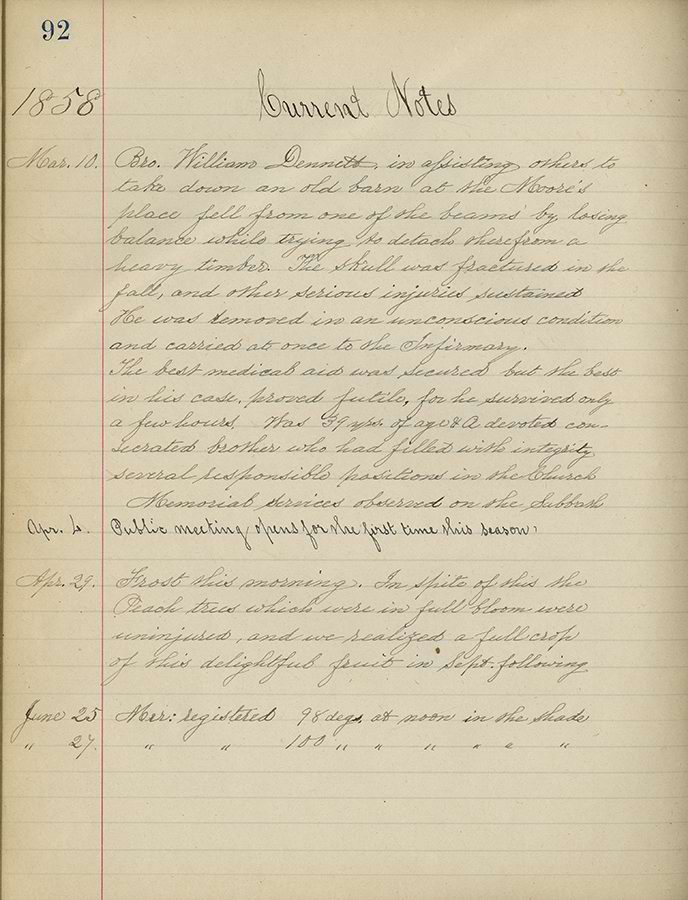 92
1858 Current Notes
Mar. 10. Bro. William Dennett, in assisting others to
take down an old barn at the Moore's
place fell from one of the beams by losing
balance while trying to detach therefrom a
heavy timber. The skull was fractured in the
fall, and other serious injuries sustained
He was removed in an unconscious condition
and carried at once to the Infirmary.
The best medical aid was secured but the best
in his case, proved futile, for he survived only
a few hours. Was 39 yrs. of age & A devoted con-
secrated brother who had filled with integrity
several responsible positions in the Church
Memorial services observed on the Sabbath
Apr. 4. Public meeting opens for the first time this season.
Apr. 29. Frost this morning. In spite of this the
Peach trees which were in full bloom were
uninjured, and we realized a full crop
of this delightful fruit in Sept. following
June 25 Mer: registered 98 degs. at noon in the shade
" 27. " " 100 " " " " " "